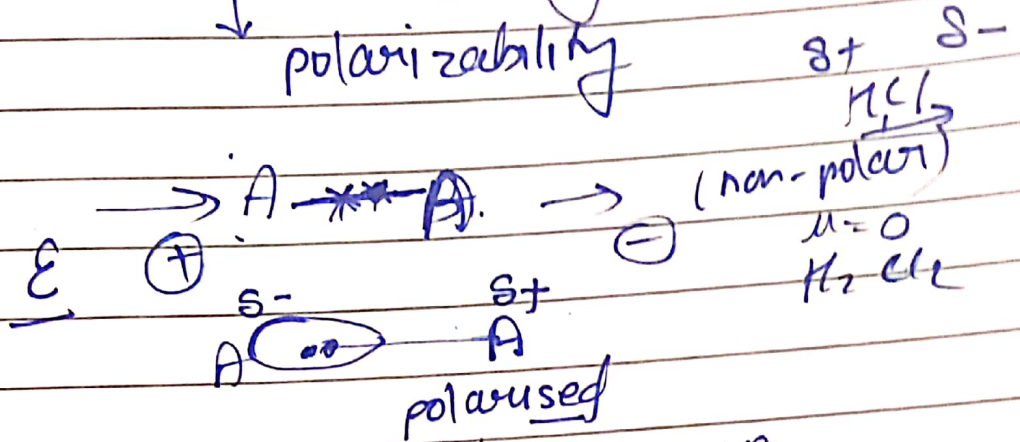 ↓
polarizability
δ+ δ-
HCl
→ A-××-A. → (non-polar)
ε ⊕ ⊖ μ=0
H₂ Cl₂
δ- δ+
A •• A
polarused